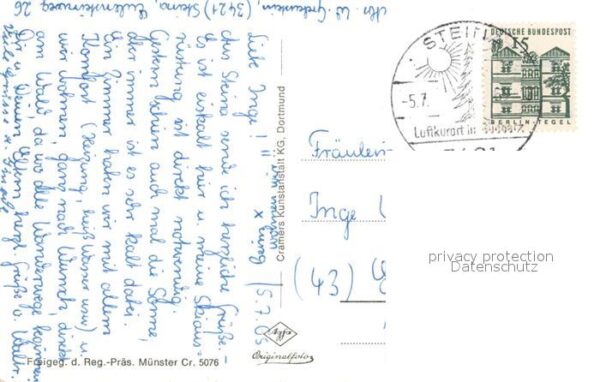 Abs. W. (3421) Steina, 26
Liebe Inge!
Aus Steina sende ich herzliche Grüße.
Es ist eiskalt hier u. meine Skiaus-
rüstung ist direkt notwendig.
Gestern schien auch mal die Sonne,
aber immer ist es sehr kalt dabei.
Ein Zimmer haben wir mit allem
Komfort (Heizung, heiß Wasser usw.) u.
wir wohnen, ganz nach Wunsch, direkt
am Wald, da wo alle Wanderwege
Dir u. Deinen Eltern herzl. Grüße v.
Viele Grüße
wohnen wir
Cramers Kunstanstalt KG, Dortmund
Freigeg. d. Reg.-Präs. Münster Cr. 5076
Agfa
Originalfoto
STEINA
-5.7.
Luftkurort im
DEUTSCHE BUNDESPOST
15
BERLIN-TEGEL
Fräulein
Inge
(43)
privacy protection
Datenschutz